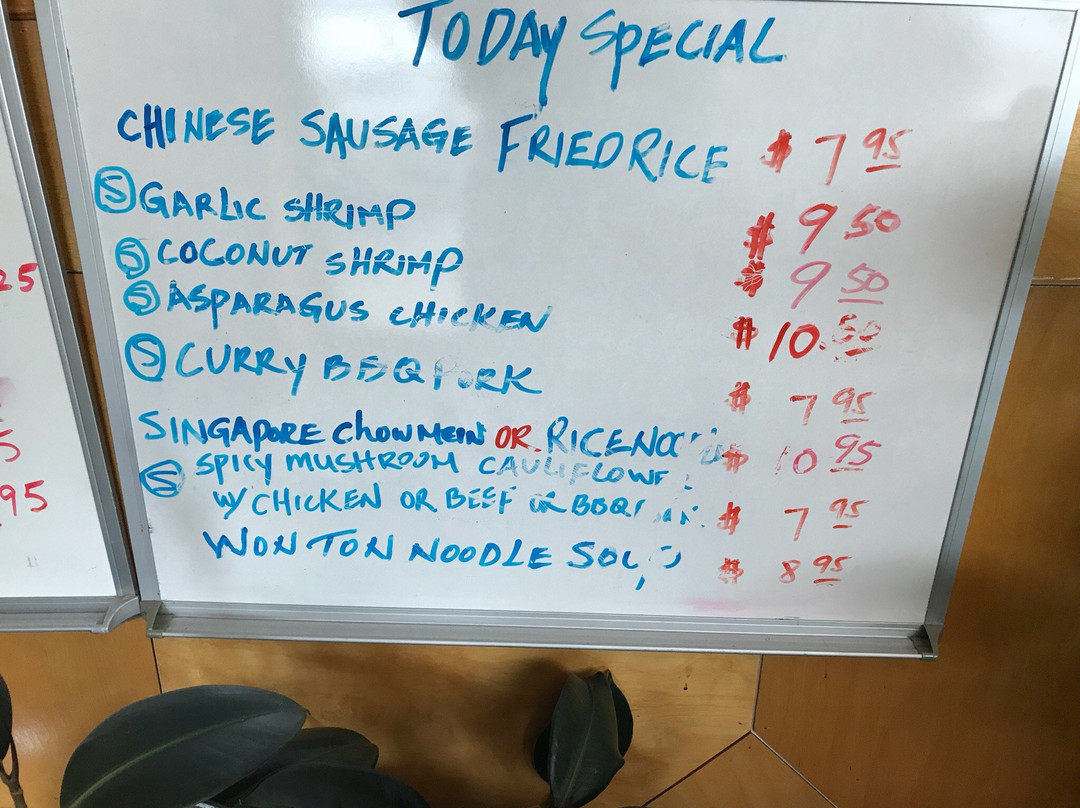 TODAY SPECIAL
CHINESE SAUSAGE FRIED RICE $ 7 95
Ⓢ GARLIC SHRIMP $ 9 50
Ⓢ COCONUT SHRIMP $ 9 50
Ⓢ ASPARAGUS CHICKEN $ 10.50
Ⓢ CURRY BBQ PORK $ 7 95
SINGAPORE CHOWMEIN OR RICE $ 10 95
Ⓢ SPICY MUSHROOM
W/ CHICKEN OR BEEF OR BBQ $ 7 95
WON TON NOODLE SOUP $ 8 95
25
5
95